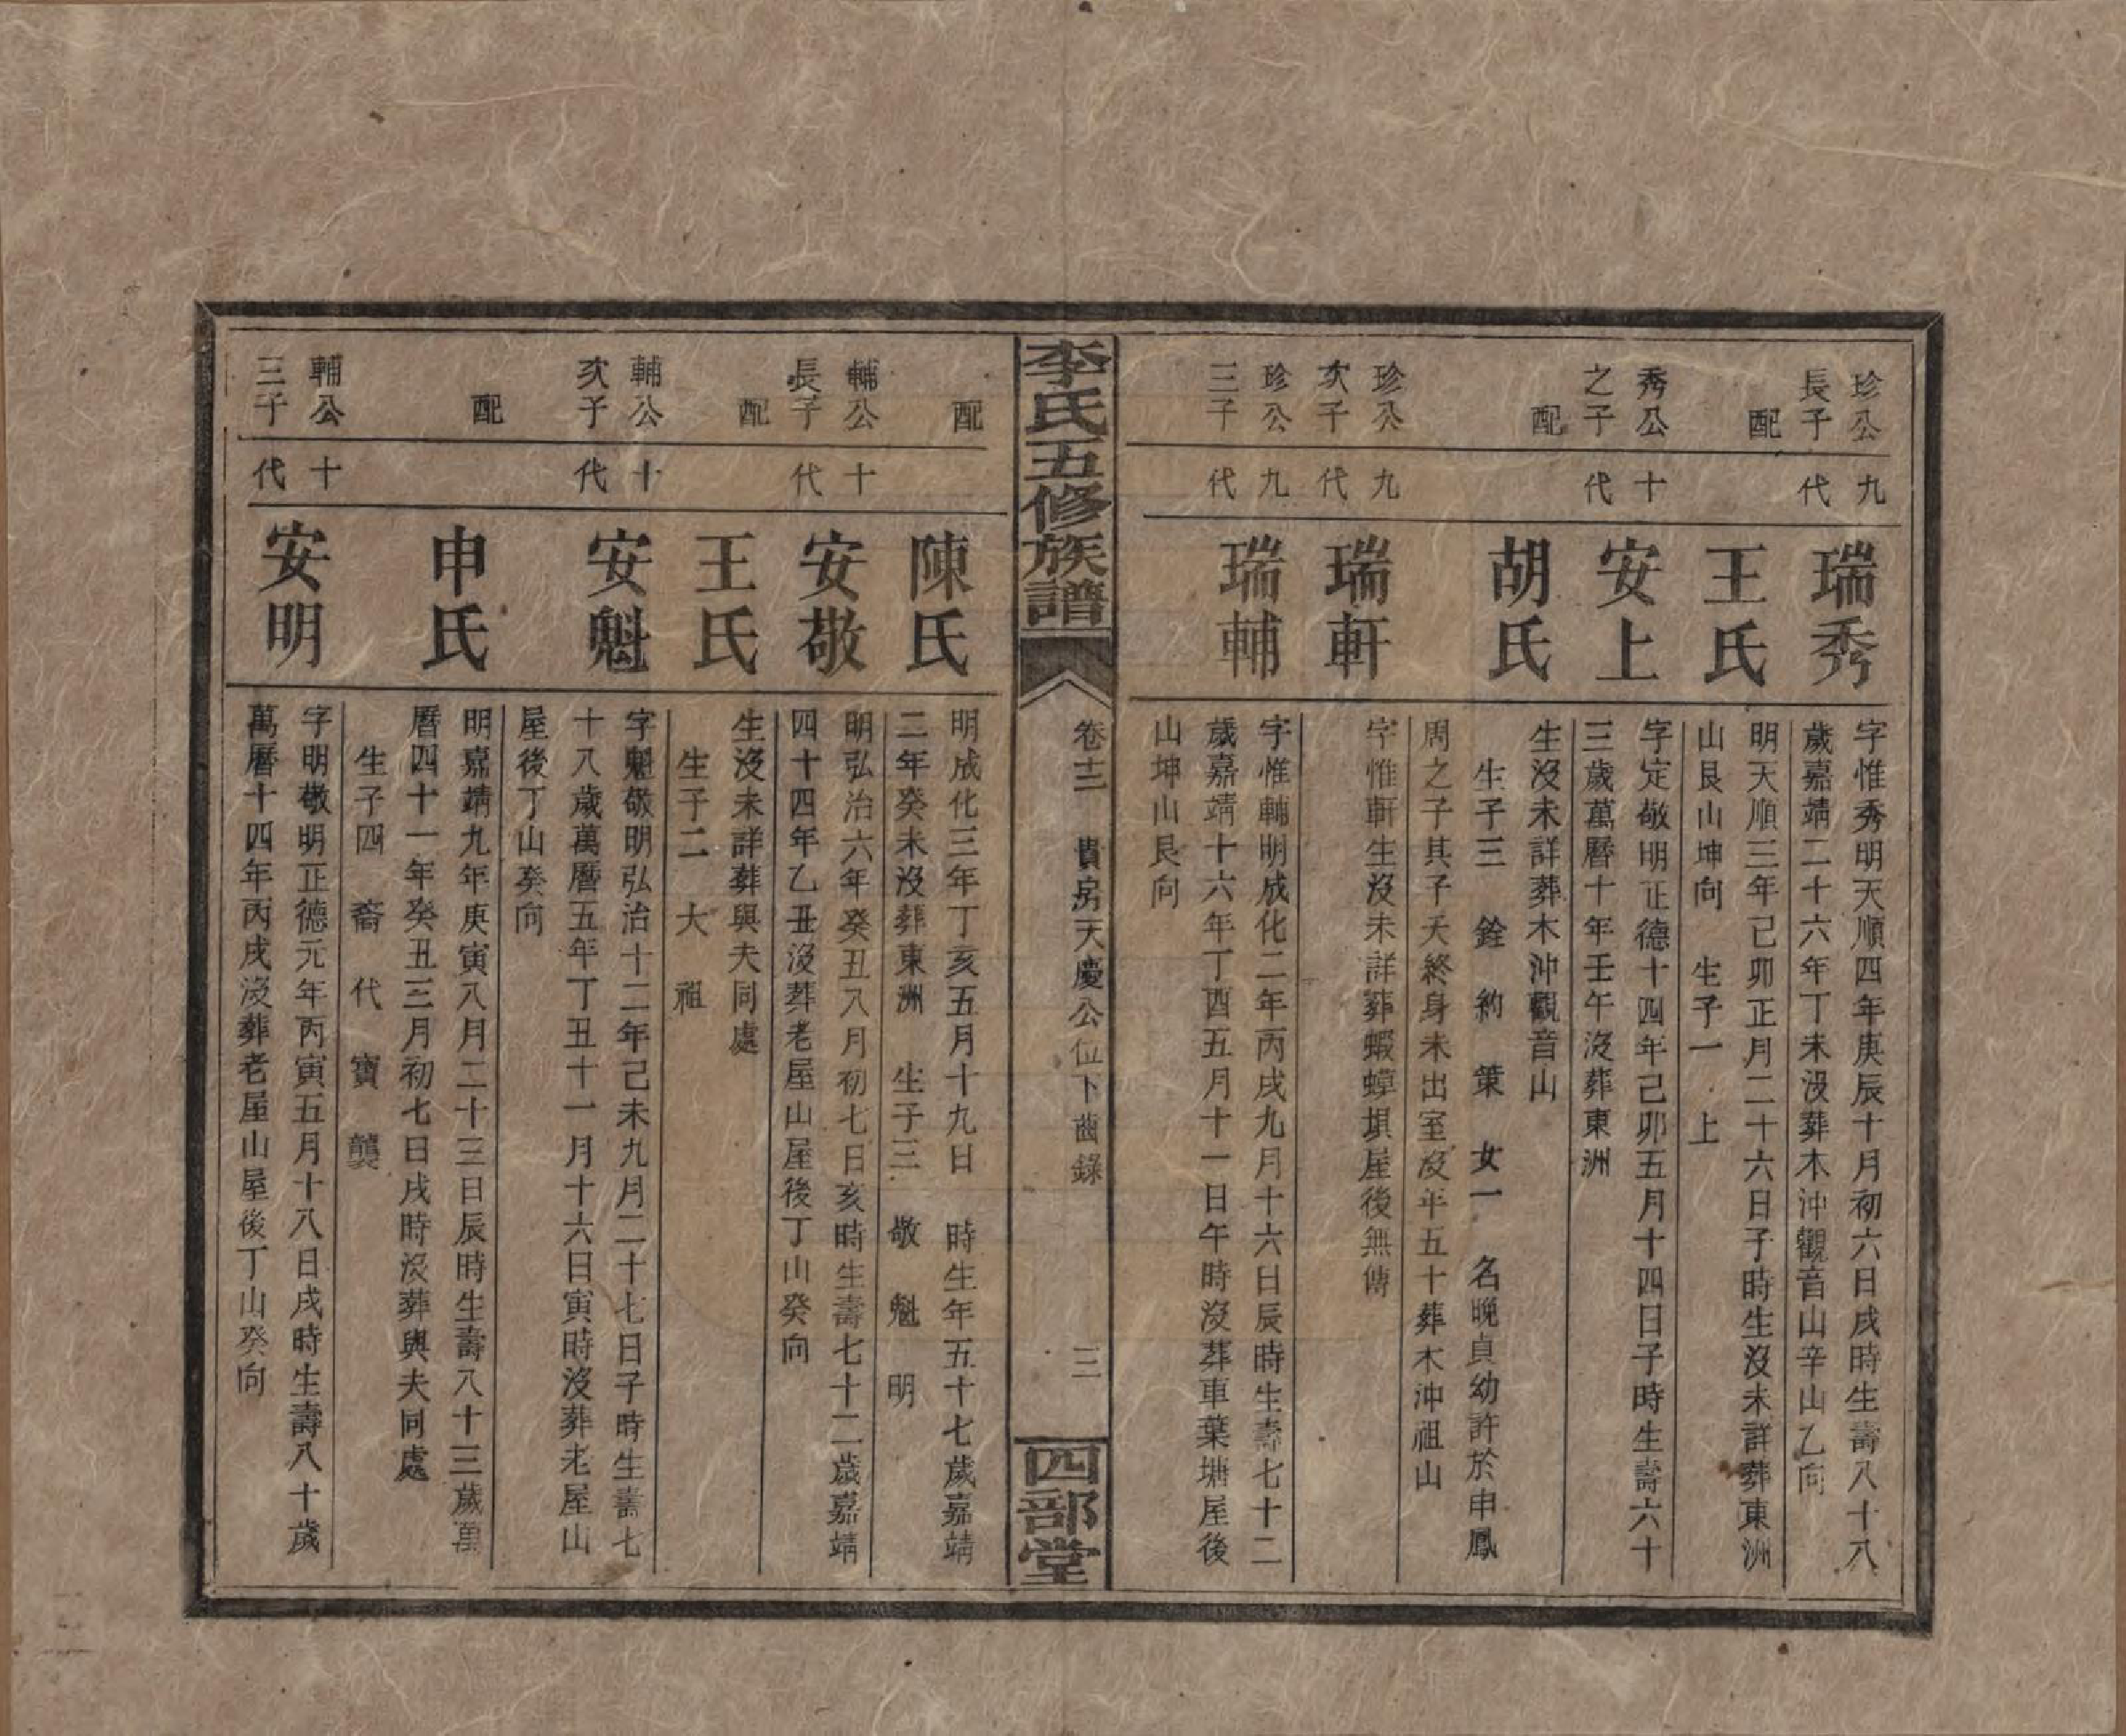 珍公
長子
九
代
瑞秀
字惟秀明天順四年庚辰十月初六日戌時生壽八十八
歲嘉靖二十六年丁未沒葬木沖觀音山辛山乙向
配
王氏
明天順三年己卯正月二十六日子時生沒未詳葬東洲
山艮山坤向 生子一 上
秀公
之子
十
代
安上
字定敬明正德十四年己卯五月十四日子時生壽六十
三歲萬曆十年壬午沒葬東洲
配
胡氏
生沒未詳葬木沖觀音山
生子三 銓 約 策 女一 名晚貞幼許於申鳳
周之子其子夭終身未出室沒年五十葬木沖祖山
珍公
次子
九
代
瑞軒
字惟軒生沒未詳葬蝦蟑塤屋後無傳
珍公
三子
九
代
瑞輔
字惟輔明成化二年丙戌九月十六日辰時生壽七十二
歲嘉靖十六年丁酉五月十一日午時沒葬車葉塘屋後
山坤山艮向
李氏五修族譜
卷十二 貴房天慶公位下齒錄 三
四部堂
配
陳氏
明成化三年丁亥五月十九日 時生年五十七歲嘉靖
二年癸未沒葬東洲 生子三 敬 魁 明
輔公
長子
十
代
安敬
明弘治六年癸丑八月初七日亥時生壽七十二歲嘉靖
四十四年乙丑沒葬老屋山屋後丁山癸向
配
王氏
生沒未詳葬與夫同處
生子二 大 祖
輔公
次子
十
代
安魁
字魁敬明弘治十二年己未九月二十七日子時生壽七
十八歲萬曆五年丁丑十一月十六日寅時沒葬老屋山
屋後丁山癸向
配
申氏
明嘉靖九年庚寅八月二十三日辰時生壽八十三歲萬
曆四十一年癸丑三月初七日戌時沒葬與夫同處
生子四 裔 代 寶 襲
輔公
三子
十
代
安明
字明敬明正德元年丙寅五月十八日戌時生壽八十歲
萬曆十四年丙戌沒葬老屋山屋後丁山癸向